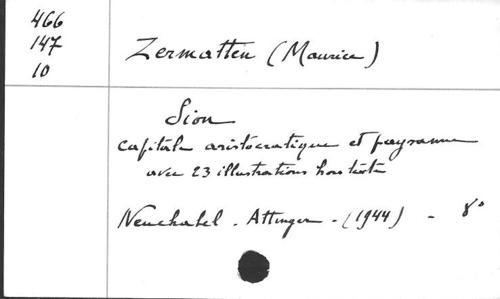 466
147
10
Zermatten (Maurice)
Sion
capitale aristocratique et paysanne
avec 23 illustrations hors texte
Neuchatel - Attinger - (1944) - 8°